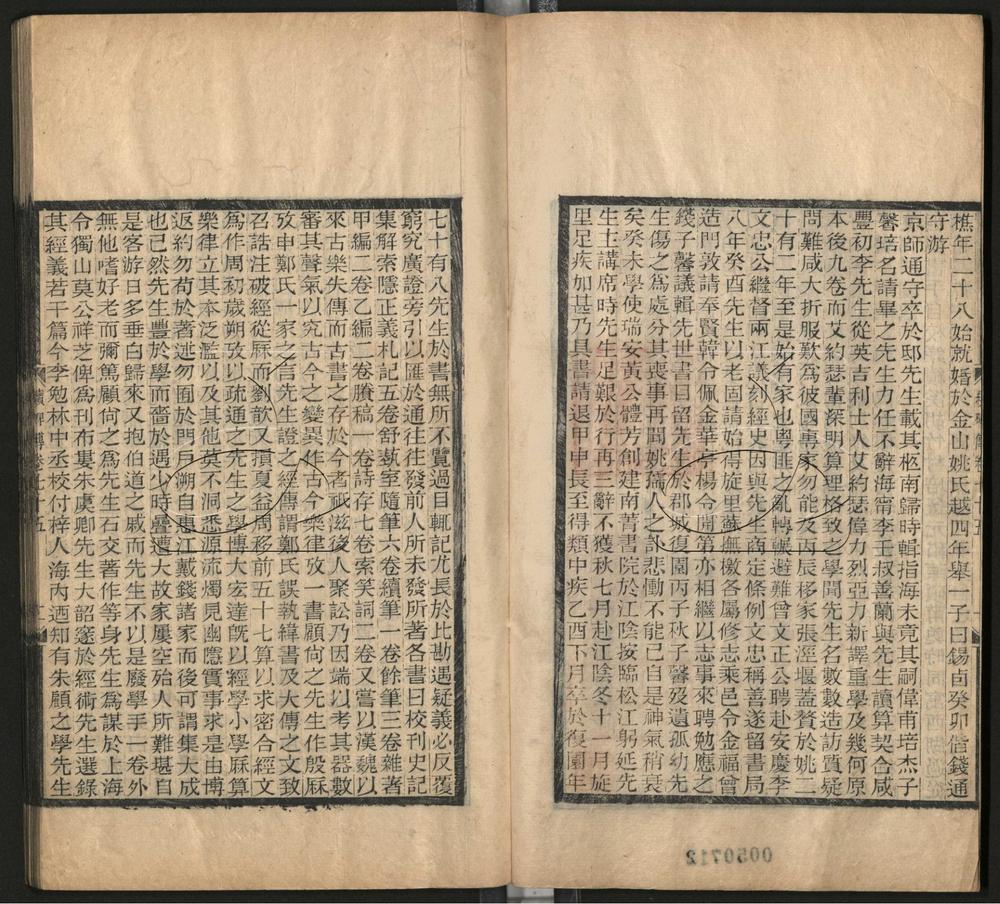 樵年二十八始就婚於金山姚氏越四年舉一子曰錫卣癸卯偕錢通
守游
京師通守卒於邸先生載其柩南歸時輯指海未竟其嗣偉甫培杰子
馨培名請畢之先生力任不辭海甯李壬叔善蘭與先生讀算契合咸
豐初李先生從英吉利士人艾約瑟偉力烈亞力新譯重學及幾何原
本後九卷而艾約瑟輩深明算理格致之學聞先生名數數造訪質疑
問難咸大折服歎爲彼國專家勿能及丙辰移家張涇堰蓋贅於姚二
十有二年至是始有家也粵匪之亂轉輾避難曾文正公聘赴安慶李
文忠公繼督兩江議刻經史因與先生商定條例文忠稱善遂留書局
八年癸酉先生以老固請始得旋里蘇撫檄各屬修志乘邑令金福曾
造門敦請奉賢韓令佩金華亭楊令開第亦相繼以志事來聘勉應之
錢子馨議輯先世書目留先生於郡城復園丙子秋子馨歿遺孤幼先
生傷之爲處分其喪事再聞姚孺人之訃悲慟不能已自是神氣稍衰
矣癸未學使瑞安黃公體芳創建南菁書院於江陰按臨松江躬延先
生主講席時先生足艱於行再三辭不獲秋七月赴江陰冬十一月旋
里足疾加甚乃具書請退甲申長至得類中疾乙酉下月卒於復園年
七十有八先生於書無所不覽過目輒記尤長於比勘遇疑義必反覆
窮究廣證旁引以匯於通往往發前人所未發所著各書曰校刊史記
集解索隱正義札記五卷舒蓺室隨筆六卷續筆一卷餘筆三卷雜著
甲編二卷乙編二卷賸稿一卷詩存七卷索笑詞二卷又嘗以漢魏以
來古樂失傳而古書之存於今者祇滋後人聚訟乃因端以考其器數
審其聲氣以究古今之變異作古今樂律攷一書顧尙之先生作殷厤
攷申鄭氏一家之言先生證之經傳謂鄭氏誤執緯書及大傳之文致
召誥注破經從厤而劉歆又損夏益周移前五十七算以求密合經文
爲作周初歲朔攷以疏通之先生之學博大宏達旣以經學小學厤算
樂律立其本泛濫以及其他莫不洞悉源流燭見幽隱實事求是由博
返約勿苟於著述勿囿於門戶溯自惠江戴錢諸家而後可謂集大成
也已然先生豐於學而嗇於遇少時疊遭大故家屢空殆人所難堪自
是客游日多垂白歸來又抱伯道之戚而先生不以是廢學手一卷外
無他嗜好老而彌篤顧尙之爲先生石交著作等身先生爲謀於上海
令獨山莫公祥芝俾爲刊布婁朱虞卿先生大韶邃於經術先生選錄
其經義若干篇今李勉林中丞校付梓人海內迺知有朱顧之學先生
0050712